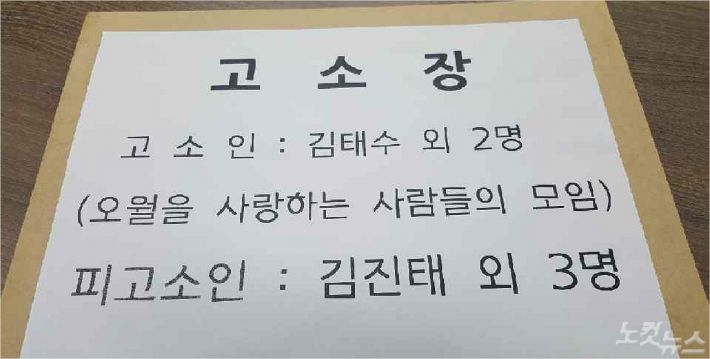 고 소 장
고 소 인 : 김태수 외 2명
(오월을 사랑하는 사람들의 모임)
피고소인 : 김진태 외 3명
노컷
뉴스